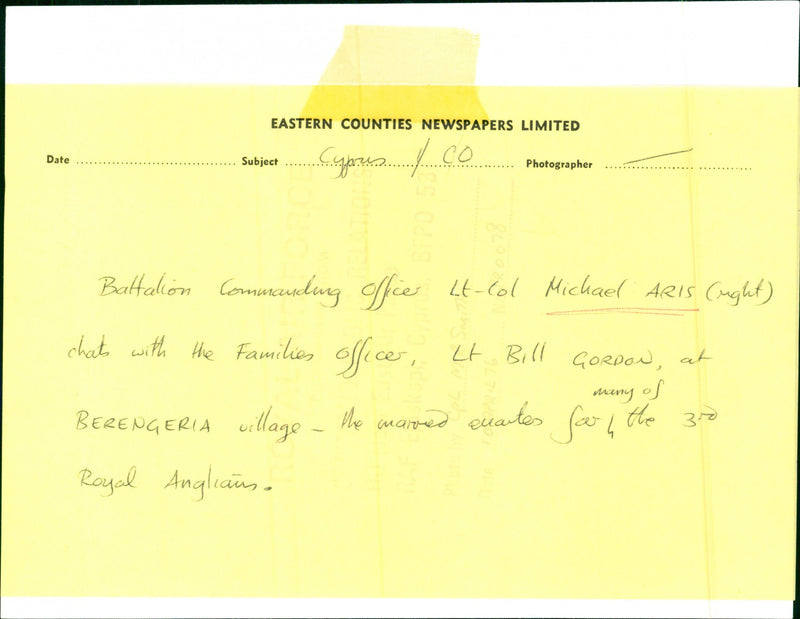 EASTERN COUNTIES NEWSPAPERS LIMITED
Date Subject Cyprus / CO Photographer
Battalion Commanding Officer Lt-Col Michael ARIS (right)
chats with the Families Officer, Lt Bill GORDON, at
many of
BERENGERIA village – the married quarters for the 3rd
Royal Anglians.